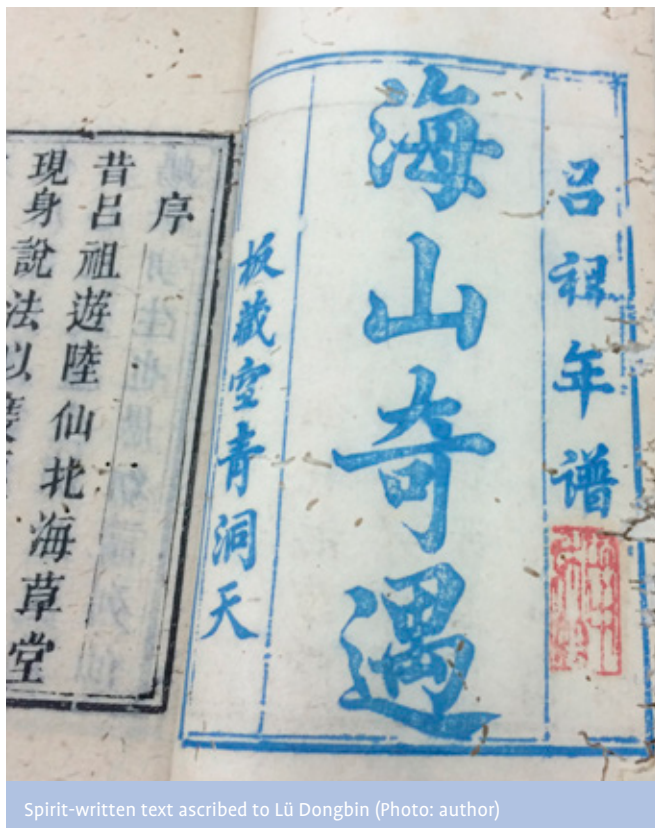 呂祖年譜
海山奇遇
板藏空青洞天
序
昔呂祖遊陸仙北海草堂
現身說法以
Spirit-written text ascribed to Lü Dongbin (Photo: author)